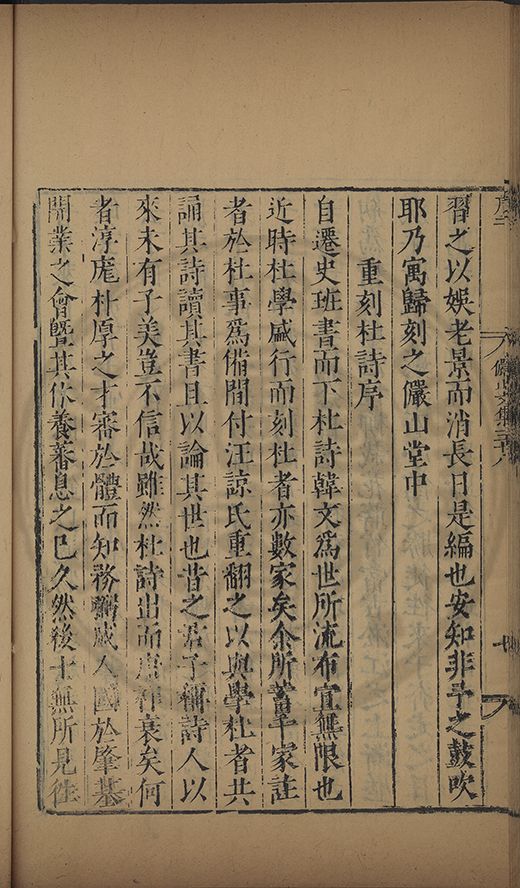 習之以娛老景而消長日是編也安知非予之鼓吹
耶乃寓歸刻之儼山堂中
重刻杜詩序
自遷史班書而下杜詩韓文爲世所流布宜無限也
近時杜學盛行而刻杜者亦數家矣余所蓄千家註
者於杜事爲備間付汪諒氏重翻之以與學杜者共
誦其詩讀其書且以論其世也昔之君子稱詩人以
來未有子美豈不信哉雖然杜詩出而唐祚衰矣何
者淳庞朴厚之才審於體而知務獨盛人國於肇基
開業之會曁其休養蕃息之已久然後士無所見徃